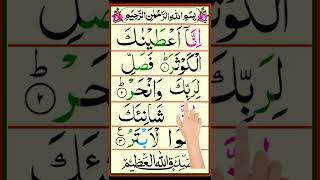 بِسْمِ اللهِ الرَّحْمٰنِ الرَّحِيْمِ
اِنَّاۤ اَعْطَيْنٰكَ
الْكَوْثَرَ ؕ ١ فَصَلِّ
لِرَبِّكَ وَانْحَرْ ؕ ٢
شَانِئَكَ
الْاَبْتَرُ ٣ ع
صدق الله العظيم